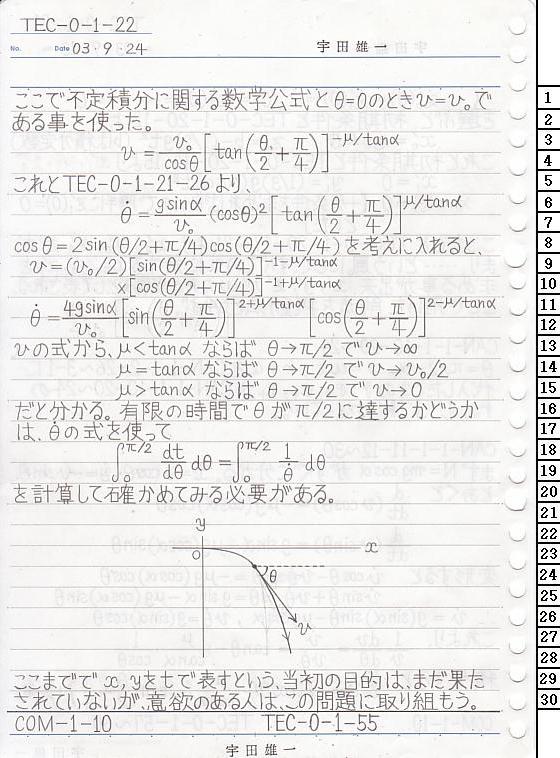 TEC-0-1-22
No. Date 03・9・24 宇田雄一
ここで不定積分に関する数学公式とθ=0のときv=v₀で
ある事を使った。
v = v₀/cosθ [tan(θ/2 + π/4)]^{-μ/tanα}
これとTEC-0-1-21-26より、
θ̇ = g sinα/v₀ (cosθ)² [tan(θ/2 + π/4)]^{μ/tanα}
cosθ=2sin(θ/2+π/4)cos(θ/2+π/4)を考えに入れると、
v=(v₀/2)[sin(θ/2+π/4)]^{-1-μ/tanα}
×[cos(θ/2+π/4)]^{-1+μ/tanα}
θ̇ = 4g sinα/v₀ [sin(θ/2 + π/4)]^{2+μ/tanα} [cos(θ/2 + π/4)]^{2-μ/tanα}
vの式から、μ<tanα ならば θ→π/2 で v→∞
μ=tanα ならば θ→π/2 で v→v₀/2
μ>tanα ならば θ→π/2 で v→0
だと分かる。有限の時間でθがπ/2に達するかどうか
は、θ̇の式を使って
∫₀^{π/2} dt/dθ dθ = ∫₀^{π/2} 1/θ̇ dθ
を計算して確かめてみる必要がある。
y
0 x
θ
v
ここまでで x, yをtで表すという、当初の目的は、まだ果た
されていないが、意欲のある人は、この問題に取り組もう。
COM-1-10 TEC-0-1-55
宇田雄一
1
2
3
4
5
6
7
8
9
10
11
12
13
14
15
16
17
18
19
20
21
22
23
24
25
26
27
28
29
30